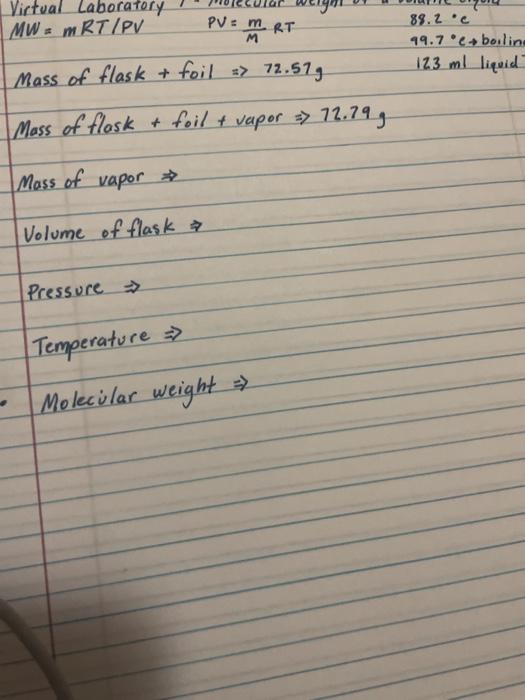 Virtual Laboratory Molecular Weight of a
MW = mRT/PV PV = m/M RT 88.2 °c
99.7 °c → boilin
Mass of flask + foil => 72.57g 123 ml liquid
Mass of flask + foil + vapor => 72.79 g
Mass of vapor =>
Volume of flask =>
Pressure =>
Temperature =>
• Molecular weight =>